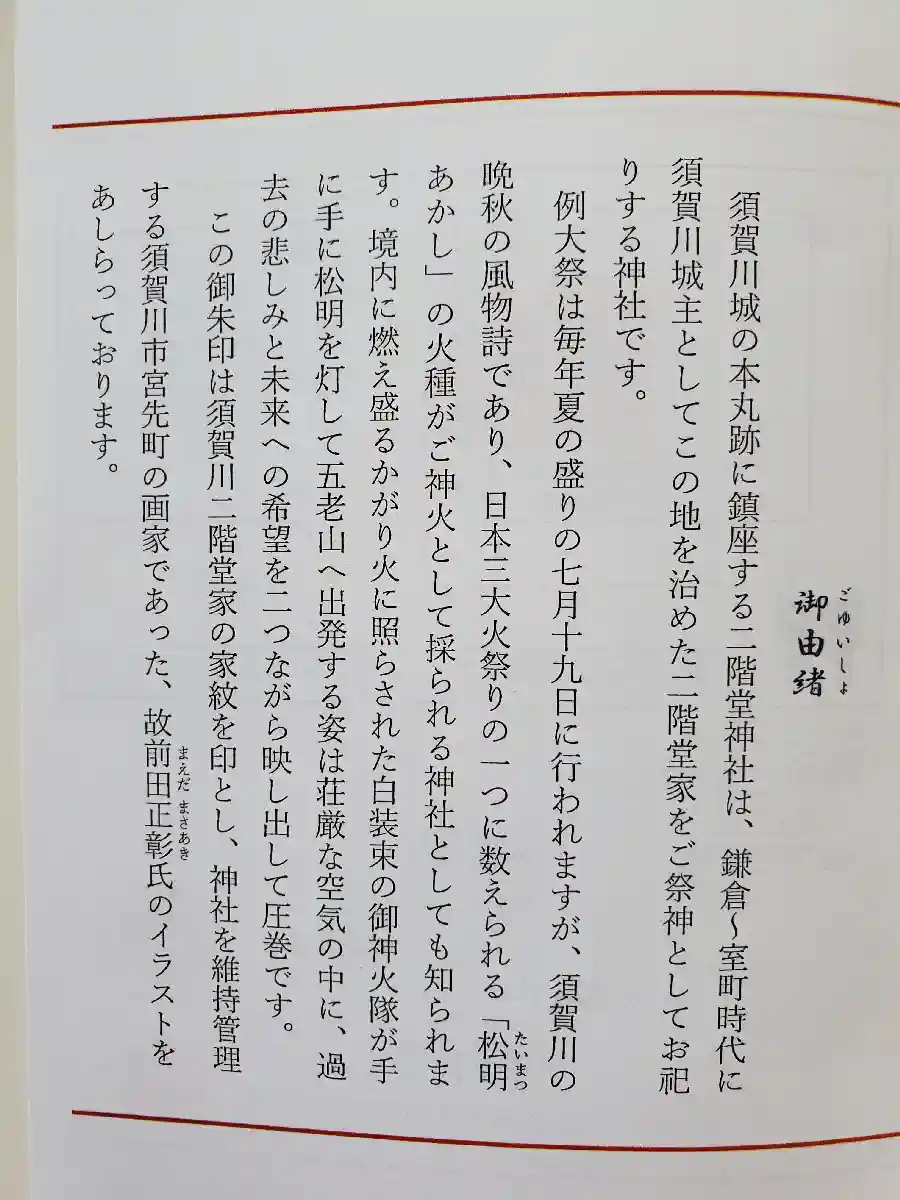 御由緒
ごゆいしょ
須賀川城の本丸跡に鎮座する二階堂神社は、鎌倉〜室町時代に
須賀川城主としてこの地を治めた二階堂家をご祭神としてお祀
りする神社です。
例大祭は毎年夏の盛りの七月十九日に行われますが、須賀川の
晩秋の風物詩であり、日本三大火祭りの一つに数えられる「松明
たいまつ
あかし」の火種がご神火として採られる神社としても知られま
す。境内に燃え盛るかがり火に照らされた白装束の御神火隊が手
に手に松明を灯して五老山へ出発する姿は荘厳な空気の中に、過
去の悲しみと未来への希望を二つながら映し出して圧巻です。
この御朱印は須賀川二階堂家の家紋を印とし、神社を維持管理
する須賀川市宮先町の画家であった、故前田正彰氏のイラストを
まえだ まさあき
あしらっております。